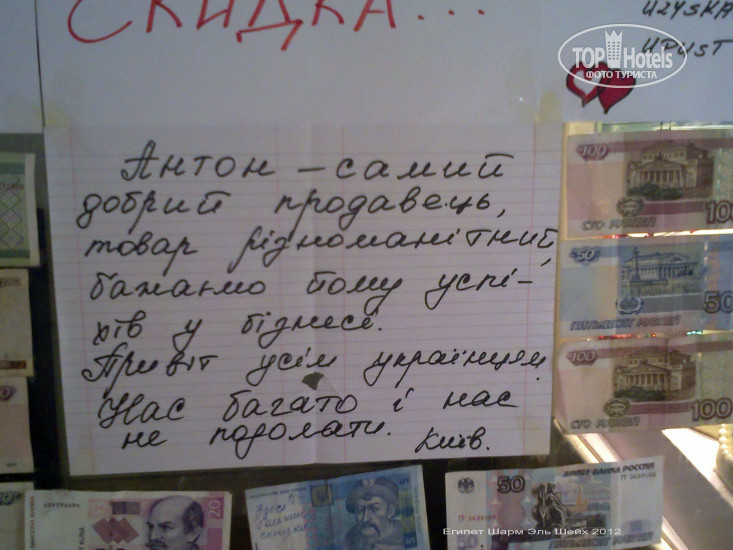 СКИДКА...
UZYSKA
UPUST
TOP Hotels
ФОТО ТУРИСТА
Антон – самий
добрий продавець,
товар різноманітний,
бажаємо йому успі-
хів у бізнесі.
Привіт усім українцям.
Нас багато і нас
не подолати. Київ.
100
СТО РУБЛЕЙ
100
50
ПЯТЬДЕСЯТ РУБЛЕЙ
50
100
СТО РУБЛЕЙ
100
20
5
50
БИЛЕТ БАНКА РОССИИ
Египет Шарм Эль Шейх 2012